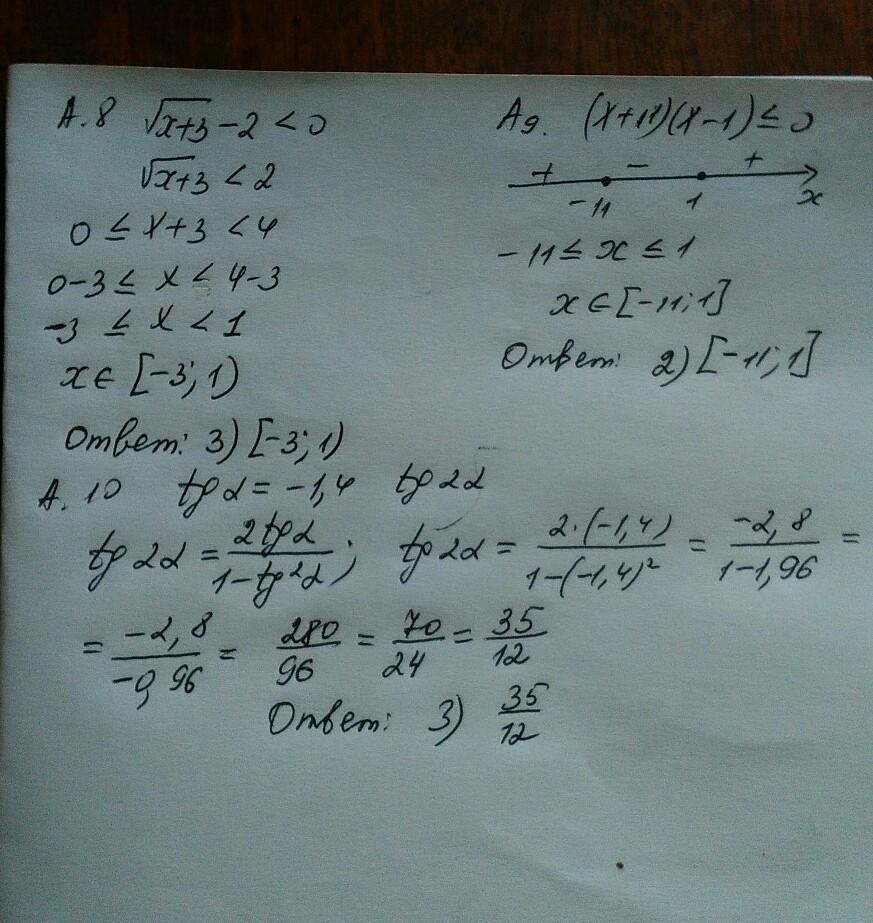 А.8 √x+3 − 2 < 0
√x+3 < 2
0 ≤ x+3 < 4
0−3 ≤ x < 4−3
−3 ≤ x < 1
x ∈ [−3; 1)
Ответ: 3) [−3; 1)
А9. (x+11)(x−1) ≤ 0
+ − +
−11 1 x
−11 ≤ x ≤ 1
x ∈ [−11; 1]
Ответ: 2) [−11; 1]
А.10 tg α = −1,4 tg 2α
tg 2α = 2tg α / 1−tg²α ; tg 2α = 2·(−1,4) / 1−(−1,4)² = −2,8 / 1−1,96 =
= −2,8 / −0,96 = 280 / 96 = 70 / 24 = 35 / 12
Ответ: 3) 35 / 12